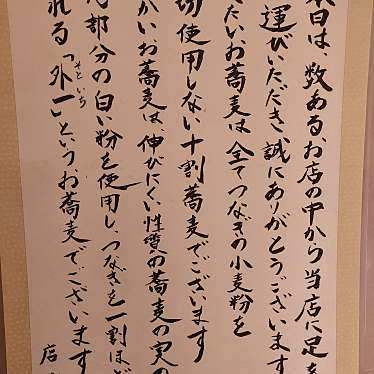 本日は、数あるお店の中から当店に足を
運びいただき誠にありがとうございます
たいお蕎麦は全てつなぎの小麦粉を
切使用しない十割蕎麦でございます
かいお蕎麦は、伸びにくい性質の蕎麦の実の
部分の白い粉を使用し、つなぎを一割ほど
れる「外一」というお蕎麦でございます
そといち
店